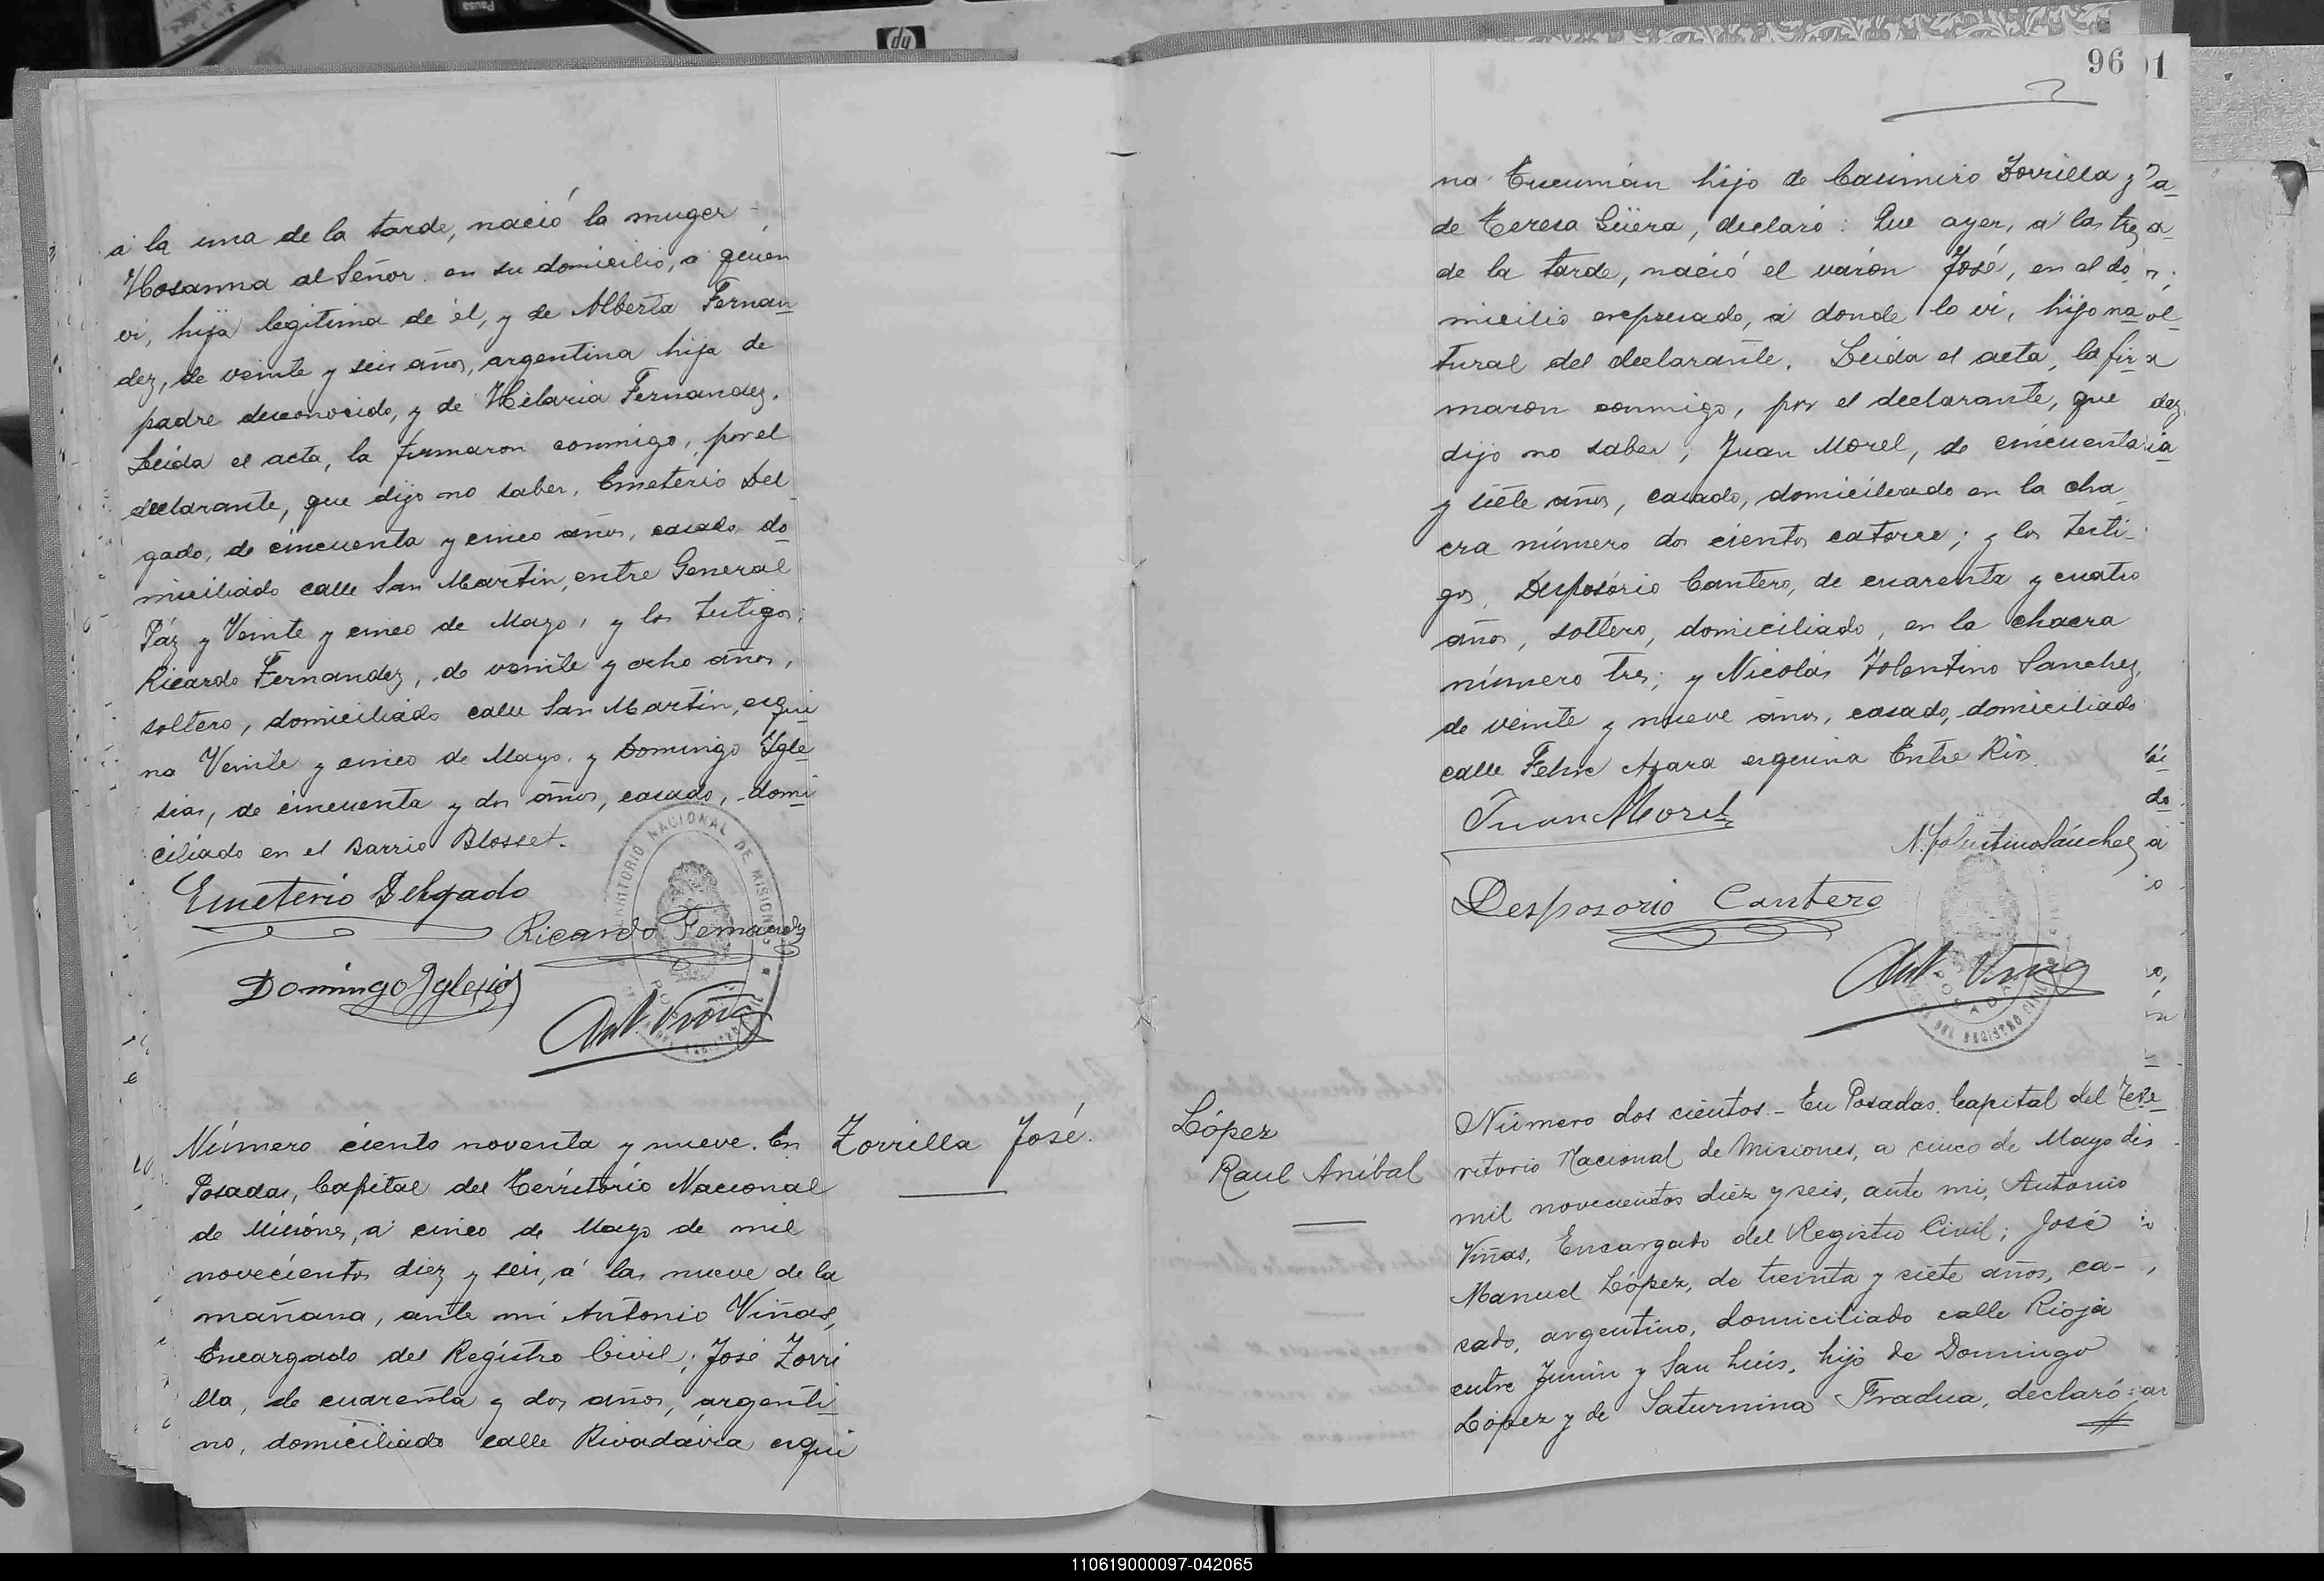 á la una de la tarde, nació la muger
Hosanna al Señor en su domicilio, a quien
vi, hija legitima de él, y de Alberta Fernan
dez, de veinte y seis años, argentina hija de
padre desconocido, y de Hilaria Fernandez.
Leida el acta, la firmaron conmigo, por el
declarante, que dijo no saber, Emeterio Del
gado, de cincuenta y cinco años, casado do
miciliado calle San Martin, entre General
Páz y Veinte y cinco de Mayo, y los testigos:
Ricardo Fernandez, de veinte y ocho años,
soltero, domiciliado calle San Martin, esqui
na Veinte y cinco de Mayo, y Domingo Ygle
sias, de cincuenta y dos años, casado, domi
ciliado en el Barrio Blosset.
Emeterio Delgado
Ricardo Fernandez
Domingo Yglesias
Ant. Viñas
Número ciento noventa y nueve. En
Posadas, Capital del Territorio Nacional
de Misiones, á cinco de Mayo de mil
novecientos diez y seis, á las nueve de la
mañana, ante mi Antonio Viñas,
Encargado del Registro Civil; José Zorri
lla, de cuarenta y dos años, argenti
no, domiciliado calle Rivadavia esqui
Zorrilla José.
96
na Tucumán hijo de Casimiro Zorrilla y
de Teresa Güera, declaró: Que ayer, á las tres
de la tarde, nació el varón José, en el do
micilio expresado, á donde lo vi, hijo na
tural del declarante. Leida el acta, la fir
maron conmigo, por el declarante, que
dijo no saber, Juan Morel, de cincuenta
y siete años, casado, domiciliado en la cha
cra número dos cientos catorce; y los testi-
gos, Desposorio Cantero, de cuarenta y cuatro
años, soltero, domiciliado, en la chacra
número tres; y Nicolás Tolentino Sanchez,
de veinte y nueve años, casado, domiciliado
calle Felix Azara esquina Entre Rios.
Juan Morel
N. Tolentino Sánchez
Desposorio Cantero
Ant. Viñas
López
Raul Aníbal
Número dos cientos.- En Posadas. Capital del Terr-
ritorio Nacional de Misiones, a cinco de Mayo de
mil novecientos diez y seis, ante mi, Antonio
Viñas, Encargado del Registro Civil; José
Manuel López, de treinta y siete años, ca-
sado, argentino, domiciliado calle Rioja
entre Junin y San Luis, hijo de Domingo
López y de Saturnina Fradua, declaró:
110619000097-042065